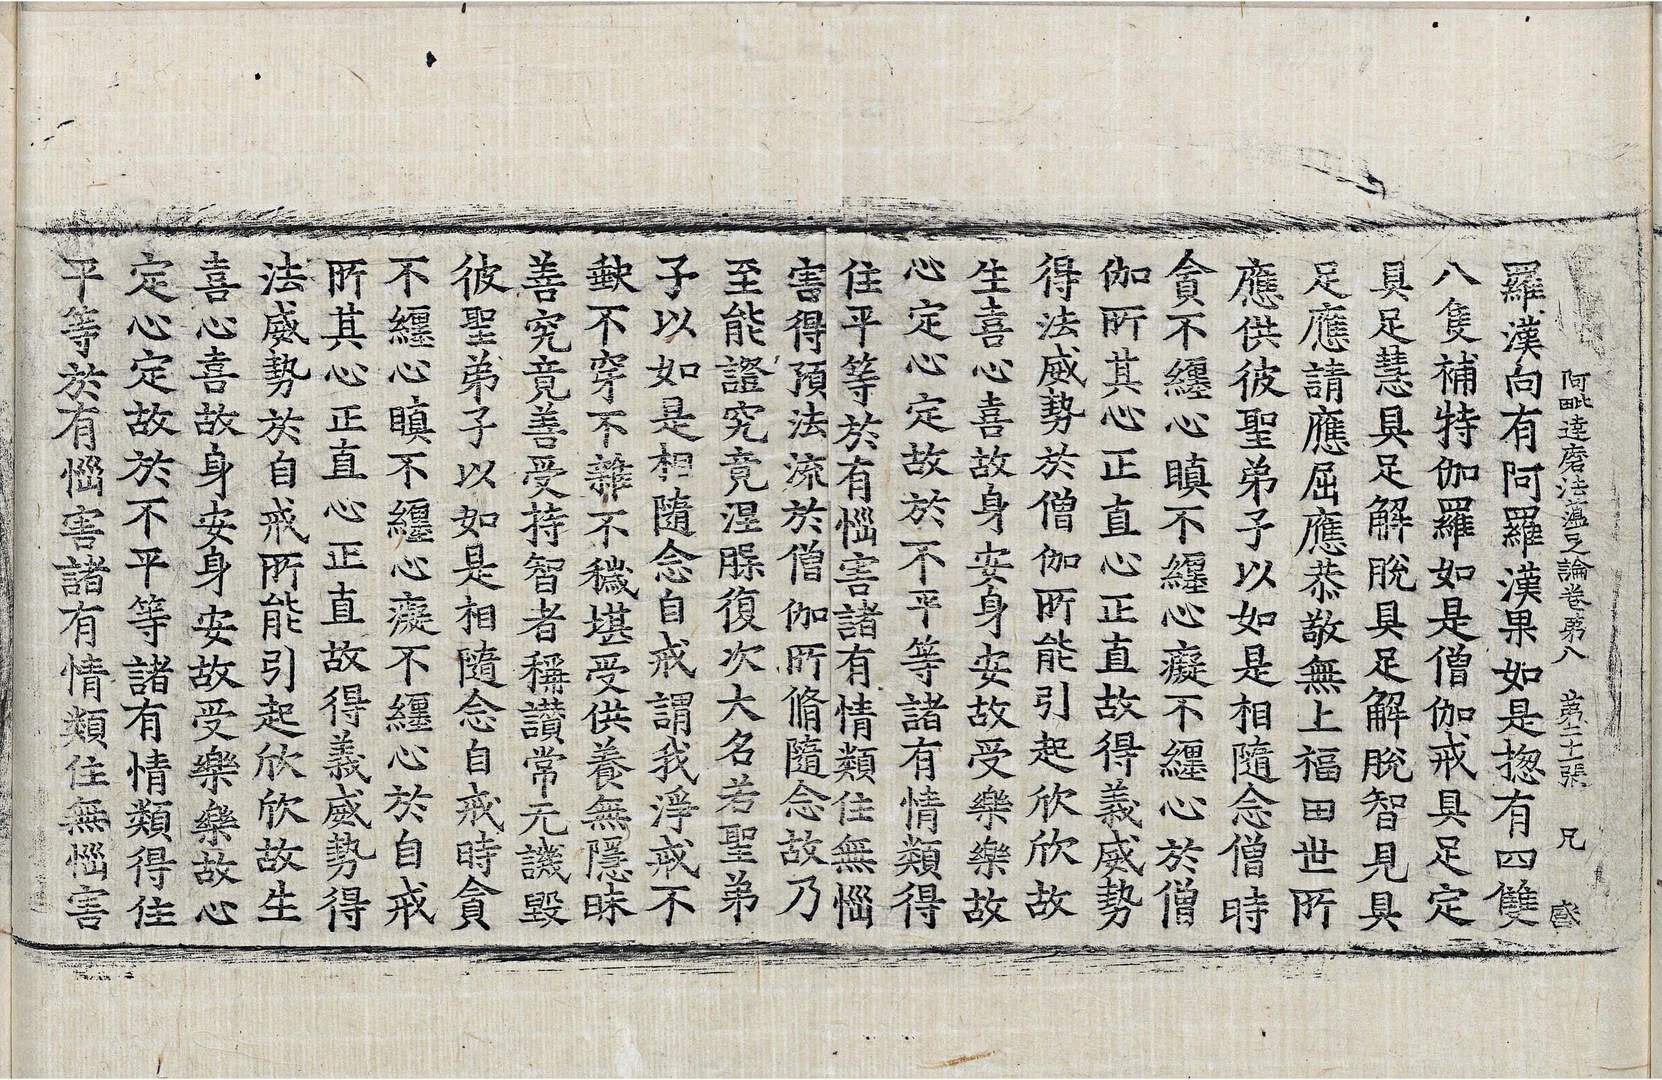 阿毗達磨法蘊足論卷第八 第二十張 兄 
羅漢向有阿羅漢果如是揔有四雙
八隻補特伽羅如是僧伽戒具足定
具足慧具足解脫具足解脫智見具
足應請應屈應恭敬無上福田世所
應供彼聖弟子以如是相隨念僧時
貪不纏心瞋不纏心癡不纏心於僧
伽所其心正直心正直故得義威勢
得法威勢於僧伽所能引起欣欣故
生喜心喜故身安身安故受樂樂故
心定心定故於不平等諸有情類得
住平等於有惱害諸有情類住無惱
害得預法流於僧伽所脩隨念故乃
至能證究竟涅槃復次大名若聖弟
子以如是相隨念自戒謂我淨戒不
缺不穿不雜不穢堪受供養無隱昧
善究竟善受持智者稱讚常无譏毀
彼聖弟子以如是相隨念自戒時貪
不纏心瞋不纏心癡不纏心於自戒
所其心正直心正直故得義威勢得
法威勢於自戒所能引起欣欣故生
喜心喜故身安身安故受樂樂故心
定心定故於不平等諸有情類得住
平等於有惱害諸有情類住無惱害